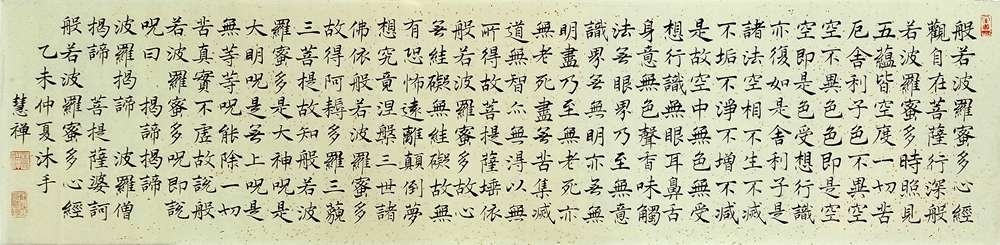 般若波羅蜜多心經
觀自在菩薩行深般
若波羅蜜多時照見
五蘊皆空度一切苦
厄舍利子色不異空
空不異色色即是空
空即是色受想行識
亦復如是舍利子是
諸法空相不生不滅
不垢不淨不增不減
是故空中無色無受
想行識無眼耳鼻舌
身意無色聲香味觸
法无眼界乃至無意
識界无無明亦无無
明盡乃至無老死亦
無老死盡无苦集滅
道無智亦無得以無
所得故菩提薩埵依
般若波羅蜜多故心
无絓礙無絓礙故無
有恐怖遠離顛倒夢
想究竟涅槃三世諸
佛依般若波羅蜜多
故得阿耨多羅三藐
三菩提故知般若波
羅蜜多是大神呪是
大明呪是无上呪是
無等等呪能除一切
苦真實不虛故說般
若波羅蜜多呪即說
呪曰 揭諦揭諦
波羅揭諦 波羅僧
揭諦 菩提薩婆訶
般若波羅蜜多心經
乙未仲夏沐手
慧禅